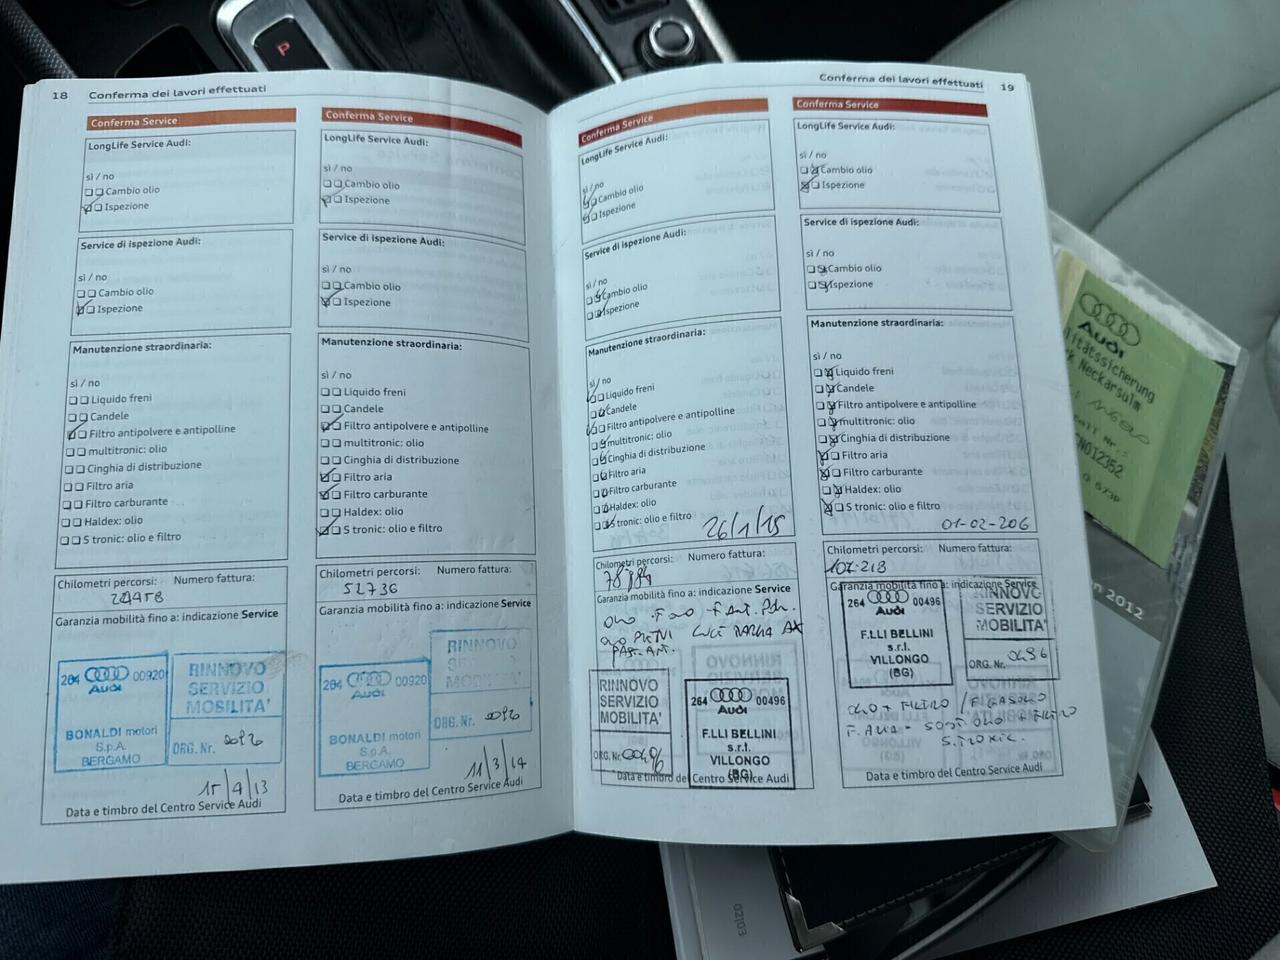 P
18 Conferma dei lavori effettuati
Conferma Service
LongLife Service Audi:
sì / no
Cambio olio
Ispezione
Service di ispezione Audi:
sì / no
Cambio olio
Ispezione
Manutenzione straordinaria:
sì / no
Liquido freni
Candele
Filtro antipolvere e antipolline
multitronic: olio
Cinghia di distribuzione
Filtro aria
Filtro carburante
Haldex: olio
S tronic: olio e filtro
Chilometri percorsi: Numero fattura:
Garanzia mobilità fino a: indicazione Service
264 00920
Audi
BONALDI motori
S.p.A.
BERGAMO
RINNOVO
SERVIZIO
MOBILITA'
ORG. Nr. 00920
15/4/13
Data e timbro del Centro Service Audi
Conferma Service
LongLife Service Audi:
sì / no
Cambio olio
Ispezione
Service di ispezione Audi:
sì / no
Cambio olio
Ispezione
Manutenzione straordinaria:
sì / no
Liquido freni
Candele
Filtro antipolvere e antipolline
multitronic: olio
Cinghia di distribuzione
Filtro aria
Filtro carburante
Haldex: olio
S tronic: olio e filtro
Chilometri percorsi: Numero fattura:
52736
Garanzia mobilità fino a: indicazione Service
264 00920
Audi
BONALDI motori
S.p.A.
BERGAMO
RINNOVO
SERVIZIO
MOBILITA'
ORG. Nr. 00920
11/3/14
Data e timbro del Centro Service Audi
Conferma dei lavori effettuati 19
Conferma Service
LongLife Service Audi:
sì / no
Cambio olio
Ispezione
Service di ispezione Audi:
sì / no
Cambio olio
Ispezione
Manutenzione straordinaria:
sì / no
Liquido freni
Candele
Filtro antipolvere e antipolline
multitronic: olio
Cinghia di distribuzione
Filtro aria
Filtro carburante
Haldex: olio
S tronic: olio e filtro
26/1/15
Chilometri percorsi: Numero fattura:
Garanzia mobilità fino a: indicazione Service
RINNOVO
SERVIZIO
MOBILITA'
ORG. Nr. 00496
264 00496
Audi
F.LLI BELLINI
s.r.l.
VILLONGO
(BG)
Data e timbro del Centro Service Audi
Conferma Service
LongLife Service Audi:
sì / no
Cambio olio
Ispezione
Service di ispezione Audi:
sì / no
Cambio olio
Ispezione
Manutenzione straordinaria:
sì / no
Liquido freni
Candele
Filtro antipolvere e antipolline
multitronic: olio
Cinghia di distribuzione
Filtro aria
Filtro carburante
Haldex: olio
S tronic: olio e filtro
01-02-206
Chilometri percorsi: Numero fattura:
102-218
Garanzia mobilità fino a: indicazione Service
264 00496
Audi
F.LLI BELLINI
s.r.l.
VILLONGO
(BG)
RINNOVO
SERVIZIO
MOBILITA'
ORG. Nr. 0496
OLIO + FILTRO / F GASOLIO
F. ARIA - SOST OLIO + FILTRO
S.TRONIC.
Data e timbro del Centro Service Audi
Audi
Neckarsulm
2012
02|03